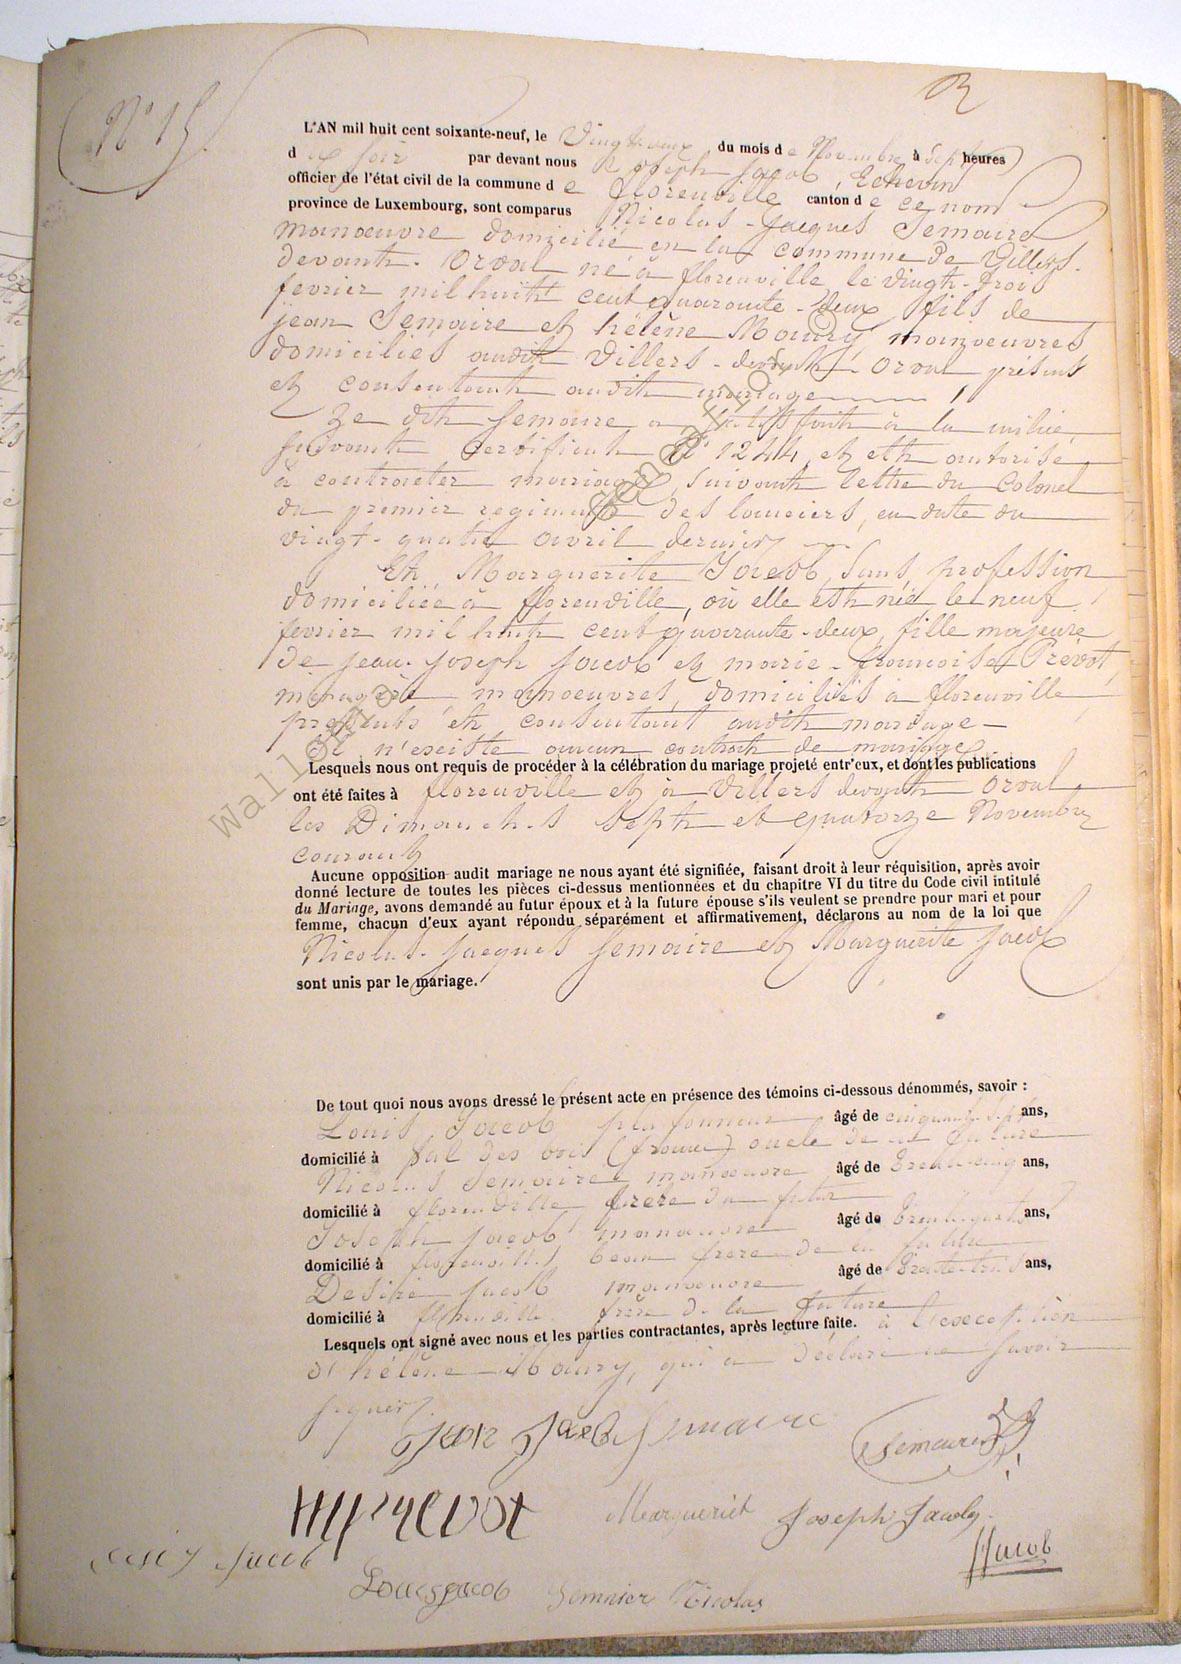 N° 15
L'AN mil huit cent soixante-neuf, le Vingt deux du mois de Novembre à sept heures
du soir par devant nous Joseph Jacob, Echevin
officier de l'état civil de la commune de florenville canton de ce nom
province de Luxembourg, sont comparus Nicolas-Jacques Semaire
manoeuvre domicilié en la commune de Villers-
devant-Orval né à florenville le vingt-trois
fevrier mil huit cent quarante-deux fils de
jean Semaire et hélène Maury, manoeuvres
domiciliés audit Villers-devant-Orval, présents
et consentant audit mariage
Le dit Semaire a satisfait à la milice,
suivant certificat N° 1244, et est autorisé
à contracter mariage, suivant lettre du Colonel
du premier regiment des lanciers, en date du
vingt-quatre avril dernier
Et Marguerite Jacob, sans profession
domiciliée à florenville, où elle est née, le neuf
fevrier mil huit cent quarante-deux, fille majeure
de jean-joseph jacob et marie-françoise Prevot,
ménagère, manoeuvres, domiciliés à florenville
presents et consentant audit mariage
Il n'existe aucun contrat de mariage
Lesquels nous ont requis de procéder à la célébration du mariage projeté entr'eux, et dont les publications
ont été faites à florenville et à Villers devant Orval
les Dimanches sept et quatorze Novembre
courant
Aucune opposition audit mariage ne nous ayant été signifiée, faisant droit à leur réquisition, après avoir
donné lecture de toutes les pièces ci-dessus mentionnées et du chapitre VI du titre du Code civil intitulé
du Mariage, avons demandé au futur époux et à la future épouse s'ils veulent se prendre pour mari et pour
femme, chacun d'eux ayant répondu séparément et affirmativement, déclarons au nom de la loi que
Nicolas-jacques Semaire et Marguerite jacob
sont unis par le mariage.
De tout quoi nous avons dressé le présent acte en présence des témoins ci-dessous dénommés, savoir :
Louis Jacob plafonneur âgé de cinquante sept ans,
domicilié à des bois (france) oncle de la future
Nicolas Semaire manoeuvre âgé de trente cinq ans,
domicilié à florenville, frère du futur
Joseph jacob manoeuvre âgé de ans,
domicilié à florenville beau frère de la future
Desiré jacob manoeuvre âgé de trente trois ans,
domicilié à florenville frère de la future
Lesquels ont signé avec nous et les parties contractantes, après lecture faite. à l'exception
d'hélène Maury, qui a déclaré ne savoir
signer
Jean Jacob Semaire
Semaire
Prevot Marguerit Joseph Jacob
Jacob Jacob
Louis jacob Nicolas
© geneaflor
wallonia